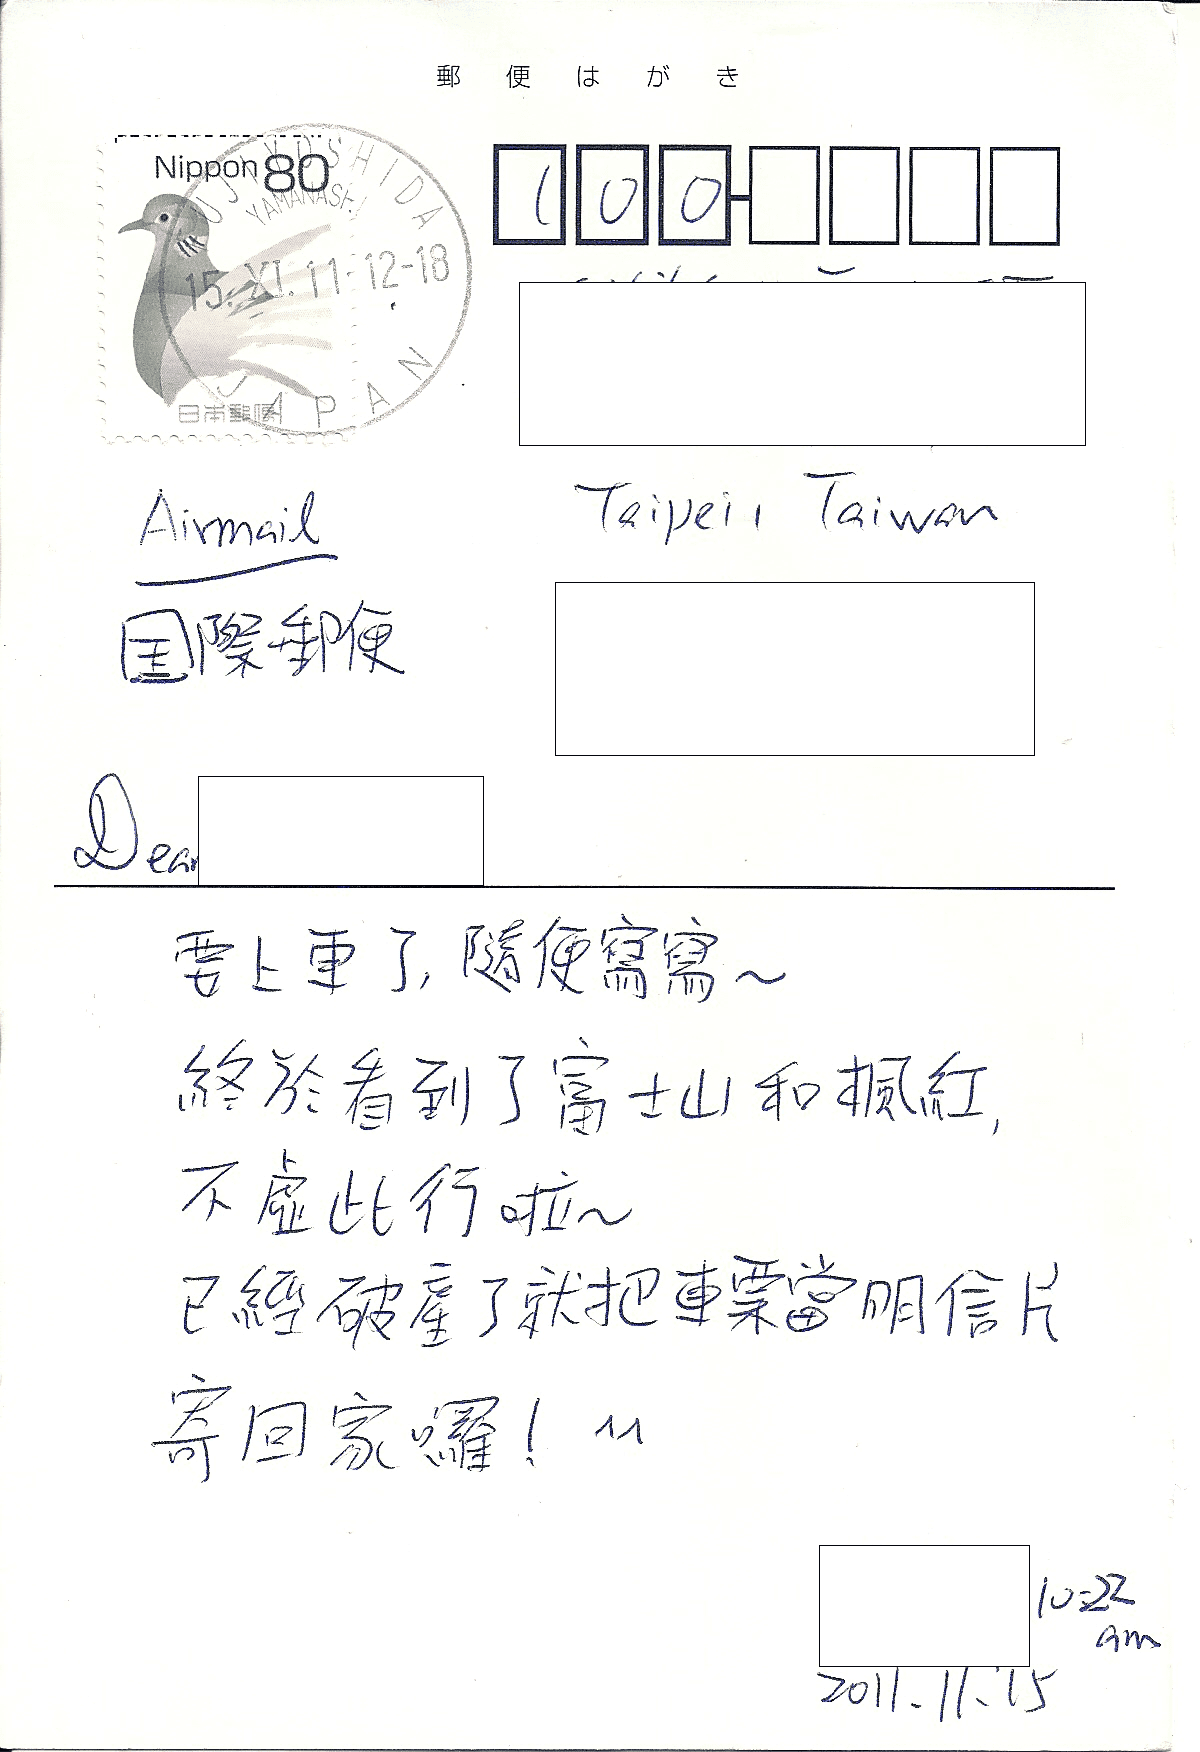 郵便はがき
Nippon 80
UJIYOSHIDA
YAMANASHI
15.XI.11 12-18
JAPAN
日本郵便
100-
Taipei, Taiwan
Airmail
国際郵便
Dear
要上車了, 隨便寫寫~
終於看到了富士山和楓紅,
不虛此行啦~
已經破產了就把車票當明信片
寄回家囉! ^^
10:22
am
2011.11.15